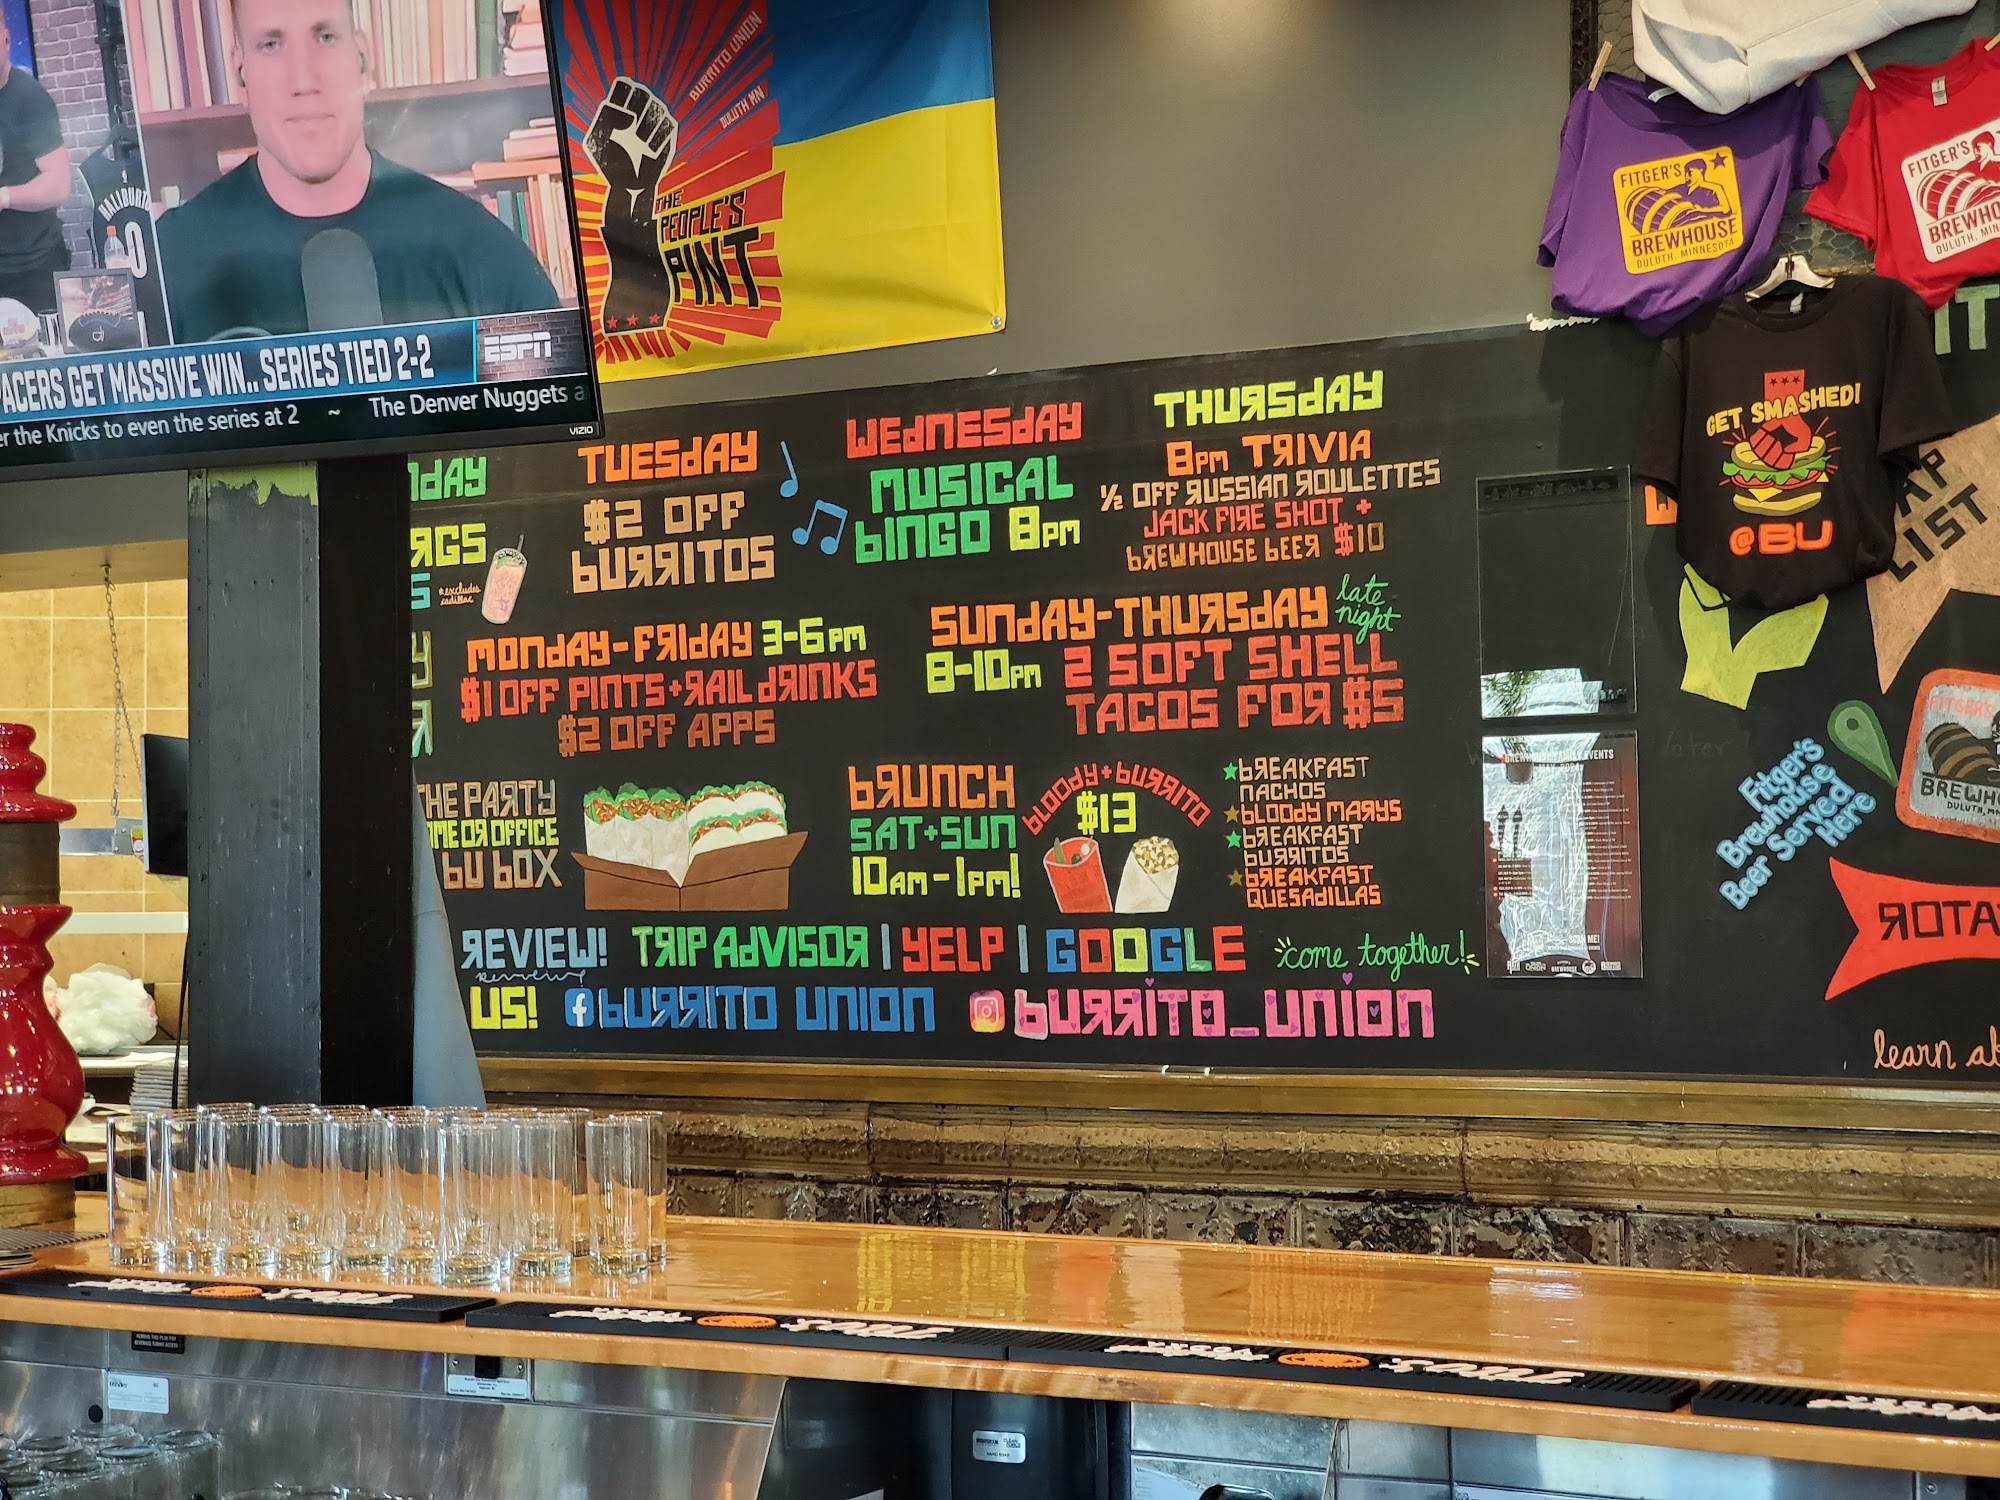 HALIBURTON
0
PACERS GET MASSIVE WIN.. SERIES TIED 2-2
ESPN
er the Knicks to even the series at 2 ~ The Denver Nuggets a
VIZIO
BURRITO UNION
DULUTH MN
THE
PEOPLE'S
PINT
FITGER'S
BREWHOUSE
DULUTH, MINNESOTA
FITGER'S
BREWHOUSE
DULUTH, MIN
GET SMASHED!
@BU
TAP
LIST
NDAY
RGS
S
*excludes
cadillac
TUESDAY
$2 OFF
BURRITOS
WEDNESDAY
MUSICAL
BINGO 8PM
THURSDAY
8PM TRIVIA
½ OFF RUSSIAN ROULETTES
JACK FIRE SHOT +
BREWHOUSE BEER $10
MONDAY-FRIDAY 3-6PM
$1 OFF PINTS+RAIL DRINKS
$2 OFF APPS
SUNDAY-THURSDAY late night
8-10PM 2 SOFT SHELL
TACOS FOR $5
THE PARTY
OME OR OFFICE
BU BOX
BRUNCH
SAT+SUN
10AM-1PM!
BLOODY+BURRITO
$13
BREAKFAST
NACHOS
BLOODY MARYS
BREAKFAST
BURRITOS
BREAKFAST
QUESADILLAS
REVIEW! TRIP ADVISOR | YELP | GOOGLE
review
come together!
US! f BURRITO UNION
BURRITO_UNION
SCAN ME!
Fitger's
Brewhouse
Beer Served
Here
FITGER'S
BREWHO
DULUTH, MN
ROTA
learn ab